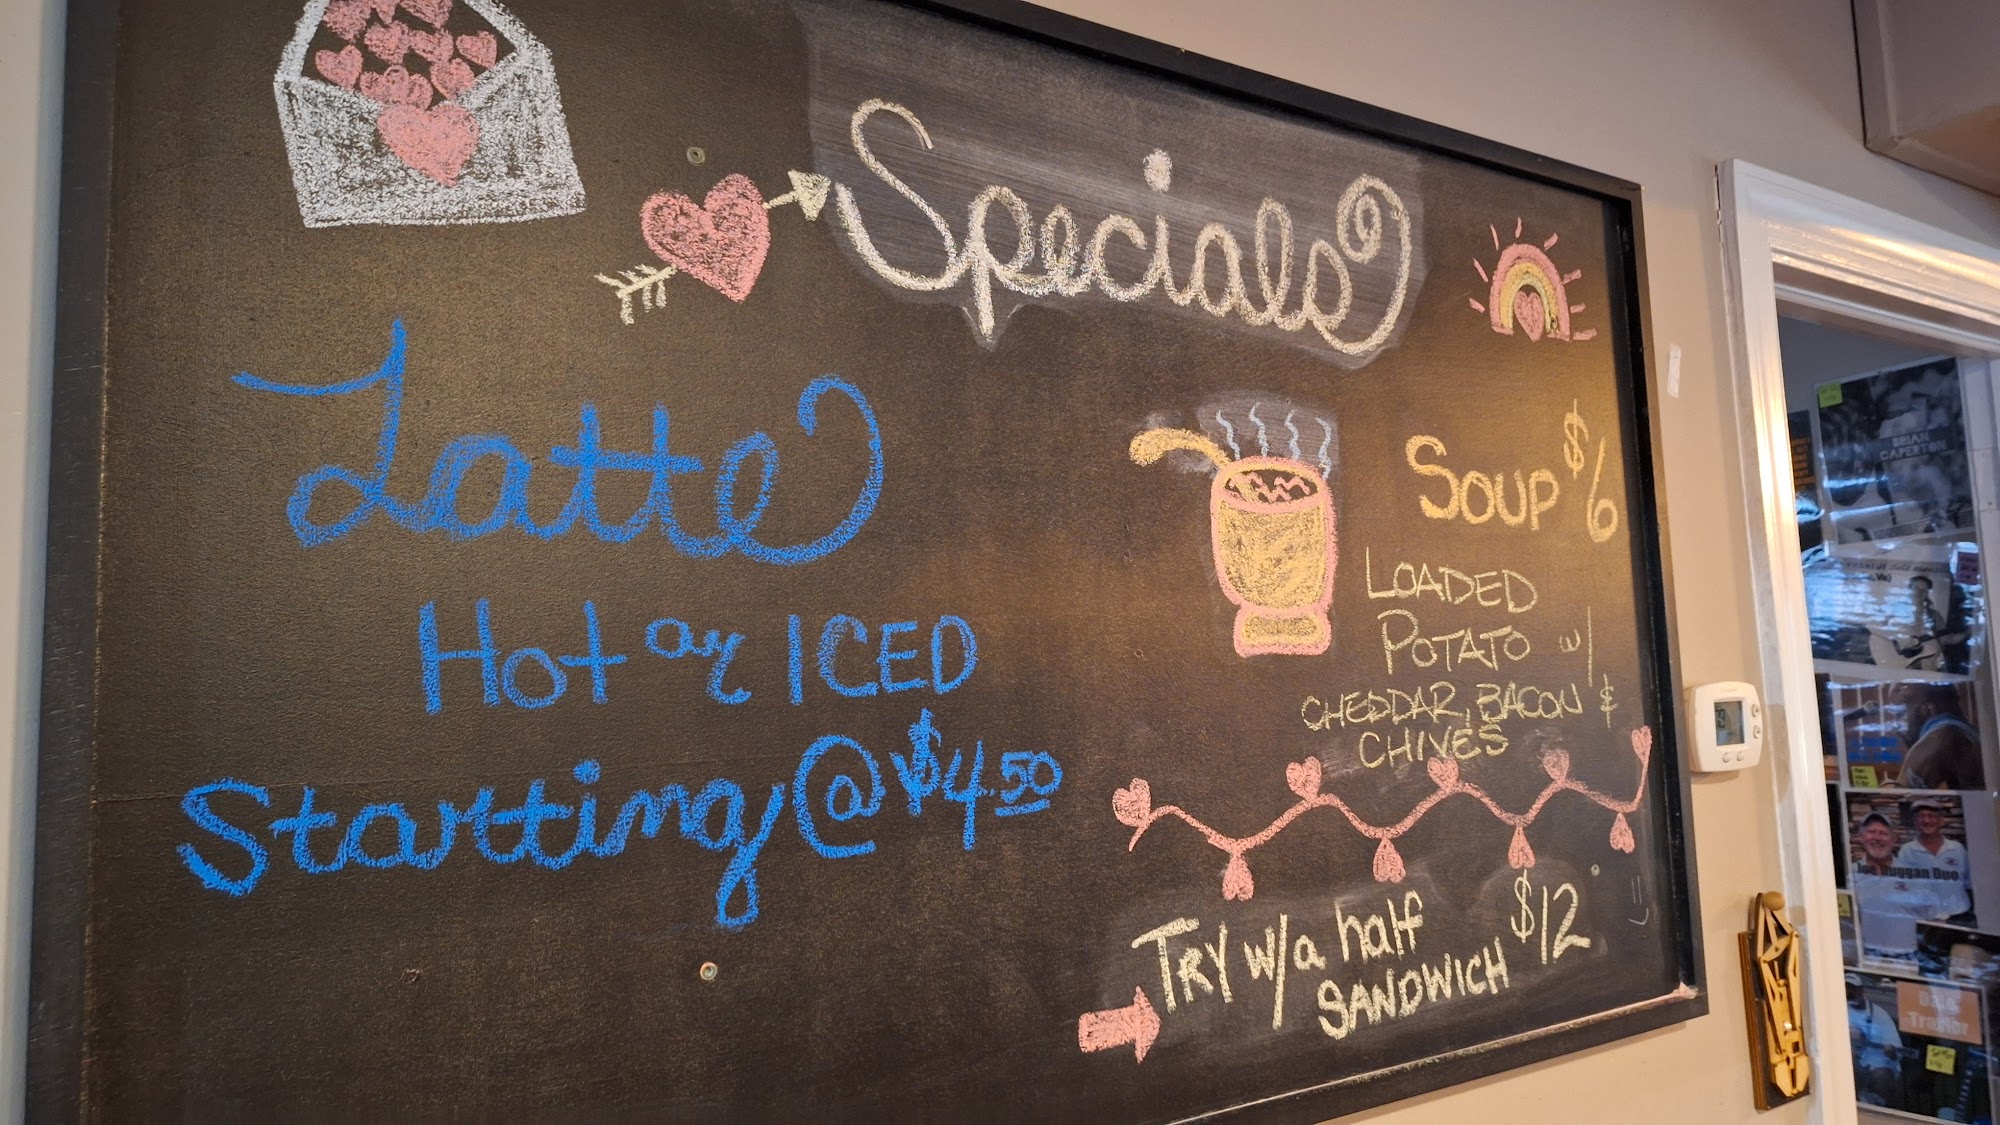 Specials
Latte
Hot or ICED
Starting @ $4.50
Soup $6
LOADED
POTATO w/
CHEDDAR, BACON &
CHIVES
TRY w/a half
SANDWICH $12
BRIAN
CAPERTON
Duggan Duo